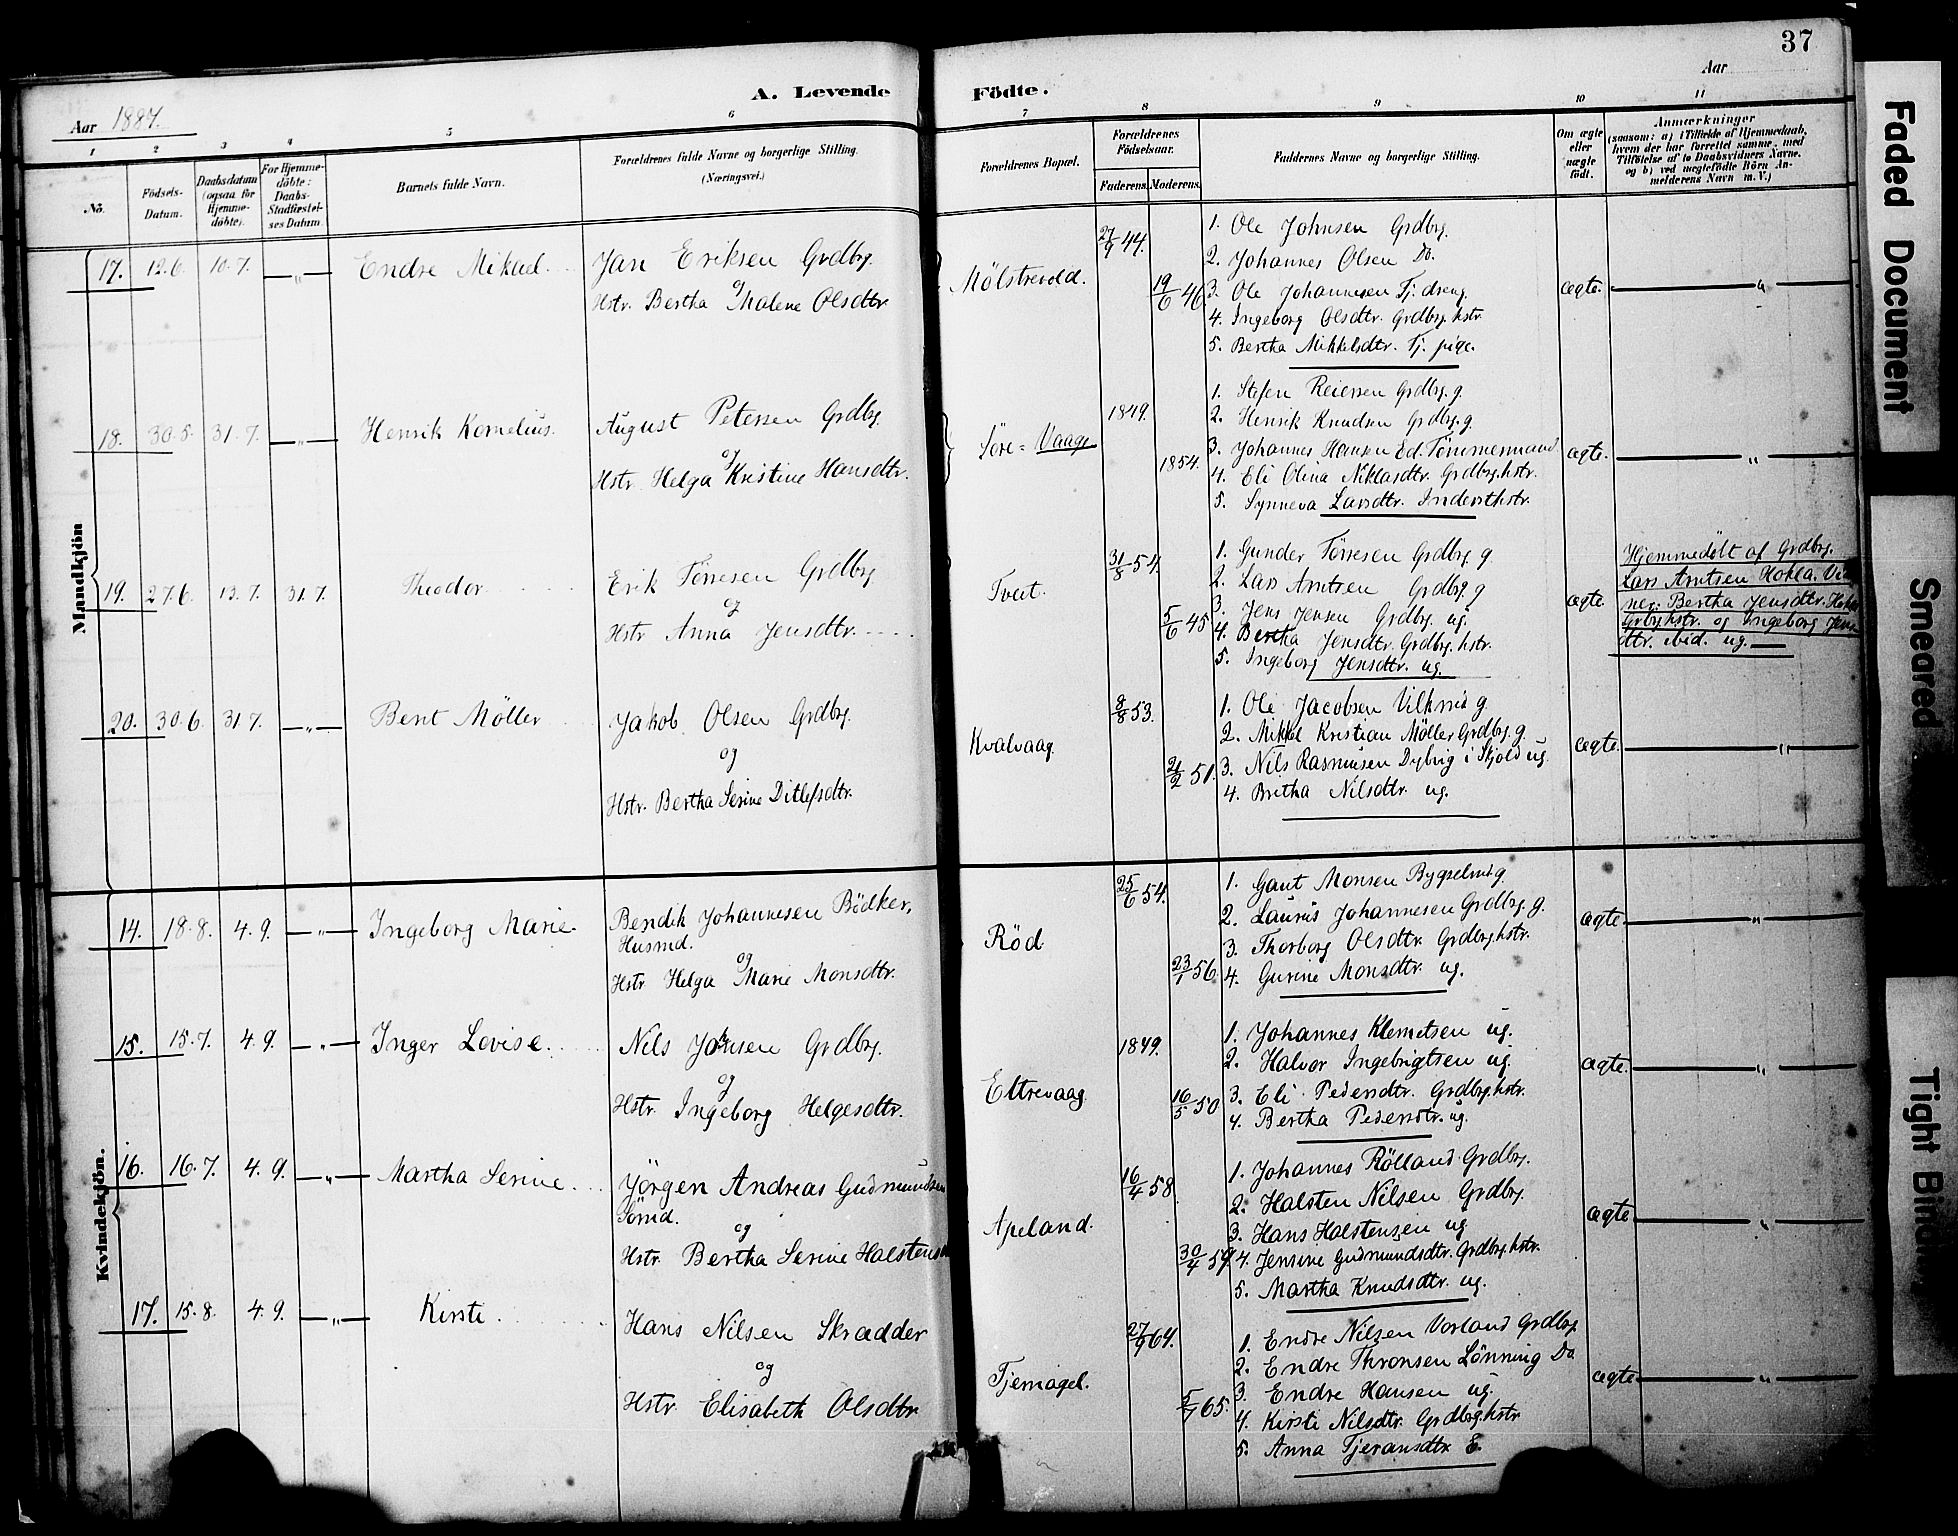 37
A. Levende Födte.
Aar 1887.
Aar
1 2 3 4 5 6 7 8 9 10 11
No.
Födsels-Datum.
Daabsdatum (ogsaa for Hjemmedöbte).
For Hjemmedöbte: Daabs-Stadfæstelses Datum.
Barnets fulde Navn.
Forældrenes fulde Navne og borgerlige Stilling. (Næringsvei.)
Forældrenes Bopæl.
Forældrenes Födselsaar.
Faderens. Moderens.
Faddernes Navne og borgerlige Stilling.
Om ægte eller uægte födt.
Anmærkninger
(saasom: a) i Tilfælde af Hjemmedaab,
hvem der har forrettet samme, med
Tilföielse af to Daabsvidners Navne.
og b) ved uægtefödte Börn An-
melderens Navn m. V.)
Mandkjön
17. 12.6. 10.7. —„— Endre Mikael.
Jan Eriksen Grdbrg.
og
Hstr. Bertha Malene Olsdtr.
Mölstrevold.
27/9 44.
19/6 46.
1. Ole Johnsen Grdbrg.
2. Johannes Olsen Do.
3. Ole Johannesen Tj. dreng.
4. Ingeborg Olsdtr. Grdbrg. hstr.
5. Bertha Mikkelsdtr. Tj. pige.
ægte. —„—
18. 30.5. 31.7. —„— Henrik Kornelius.
August Petersen Grdbrg.
og
Hstr. Helga Kristine Hansdtr.
Söre=Vaage
1849.
1854.
1. Stefen Reiersen Grdbrg. g.
2. Henrik Knudsen Grdbrg. g.
3. Johannes Hansen Ed. Tömmermand.
4. Eli Olina Niklasdtr. Grdbrg. hstr.
5. Synneva Larsdtr. Indersthstr.
ægte. —„—
19. 27.6. 13.7. 31.7. Theodor
Erik Törresen Grdbrg
og
Hstr Anna Jensdtr.
Tveit.
31/8 54.
5/6 45
1. Gunder Törresen Grdbrg. g.
2. Lars Arntsen Grdbrg. g
3. Jens Jensen Grdbrg. ug.
4. Bertha Jensdtr. Grdbrg. hstr.
5. Ingeborg Jensdtr. ug.
ægte.
Hjemmedöbt af Grdbrg.
Lars Arntsen Hokla.
ner: Bertha Jensdtr.
Grbrg hstr. og Ingeborg Jens-
dtr. ibid. ug.
20. 30.6. 31.7. —„— Bent Möller
Jakob Olsen Grdbrg.
og
Hstr. Bertha Serine Ditlefsdtr.
Kvalvaag
8/8 53.
21/2 51.
1. Ole Jacobsen g.
2. Mikkel Kristian Möller Grdbrg. g.
3. Nils Rasmussen Dybvig i Skjold ug.
4. Britha Nilsdtr. ug.
ægte. —„—
Kvindekjön.
14. 18.8. 4.9. —„— Ingeborg Marie
Bendik Johannesen Bödker,
Husmd.
og
Hstr Helga Marie Monsdtr.
Röd
25/6 54.
23/1 56.
1. Gaut Monsen g
2. Laurits Johannesen Grdbrg. g.
3. Thorborg Olsdtr. Grdbrg. hstr.
4. Gurine Monsdtr. ug.
ægte —„—
15. 15.7. 4.9. —„— Inger Lovise.
Nils Johnsen Grdbrg.
og
Hstr. Ingeborg Helgesdtr.
Eltrevaag.
1849.
16/5 50
1. Johannes Klemetsen ug.
2. Halvor Ingebrigtsen ug.
3. Eli Pedersdtr. Grdbrg. hstr.
4. Bertha Pedersdtr. ug.
ægte. —„—
16. 16.7. 4.9. —„— Martha Serine.
Jörgen Andreas Gudmundsen
og
Hstr. Bertha Serine Halstensd
Apeland.
16/4 58
30/4 59
1. Johannes Rölland Grdbrg.
2. Halsten Nilsen Grdbrg.
3. Hans Halstensen ug
4. Jensine Gudmundsdtr. Grdbrg. hstr.
5. Martha Knudsdtr. ug.
ægte —„—
17. 15.8. 4.9. —„— Kirsti
Hans Nilsen Skrædder
og
Hstr. Elisabeth Olsdtr
Tjernagel.
27/9 64.
5/7 65.
1. Endre Nilsen Vorland Grdbrg.
2. Endre Thronsen Lönning Do.
3. Endre Hansen ug.
4. Kirsti Nilsdtr. Grdbrg. hstr
5. Anna Tjeransdtr. E.
ægte —„—
Faded Document
Smeared
Tight Bindi